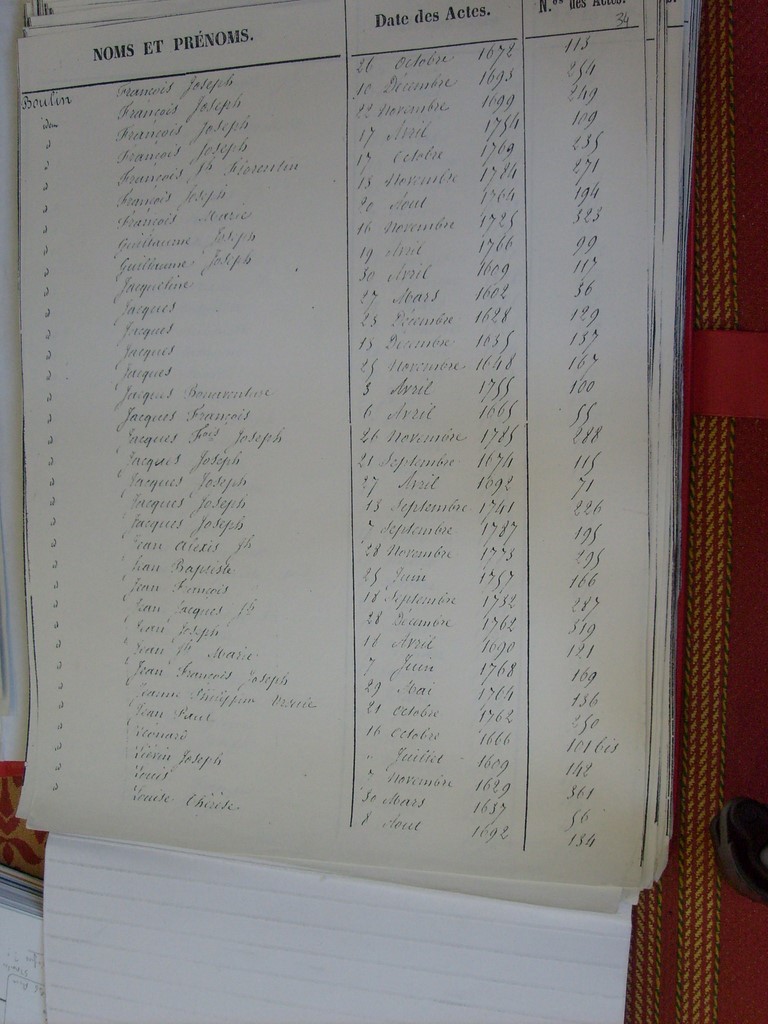 NOMS ET PRÉNOMS. Date des Actes. N.os des Actes.
34
Boulin François Joseph 26 Octobre 1672 113
idem François Joseph 10 Décembre 1693 254
" François Joseph 22 Novembre 1699 249
" François Joseph 17 Avril 1754 109
" François Jh Florentin 17 Octobre 1769 235
" François Joseph 13 Novembre 1784 271
" François Marie 20 Aout 1764 194
" Guillaume Joseph 16 Novembre 1725 323
" Guillaume Joseph 19 Avril 1766 99
" Jacqueline 30 Avril 1609 117
" Jacques 27 Mars 1602 36
" Jacques 23 Décembre 1628 129
" Jacques 13 Décembre 1635 137
" Jacques 25 Novembre 1648 167
" Jacques Bonaventure 3 Avril 1755 100
" Jacques François 6 Avril 1665 55
" Jacques Fois Joseph 26 Novembre 1785 288
" Jacques Joseph 21 Septembre 1674 115
" Jacques Joseph 27 Avril 1692 71
" Jacques Joseph 13 Septembre 1741 226
" Jacques Joseph 7 Septembre 1787 195
" Jean Alexis Jh 28 Novembre 1773 295
" Jean Baptiste 25 Juin 1757 166
" Jean François 18 Septembre 1732 287
" Jean Jacques Jh 28 Décembre 1762 319
" Jean Joseph 16 Avril 1690 121
" Jean Jh Marie 7 Juin 1768 169
" Jean François Joseph 29 Mai 1764 136
" Jeanne Philippine Ursule 21 Octobre 1762 250
" Jean Paul 16 Octobre 1666 101 bis
" Léonard " Juillet 1609 142
" Liévin Joseph 7 Novembre 1629 361
" Louis 30 Mars 1637 56
" Louise Thérèse 8 Aout 1692 134